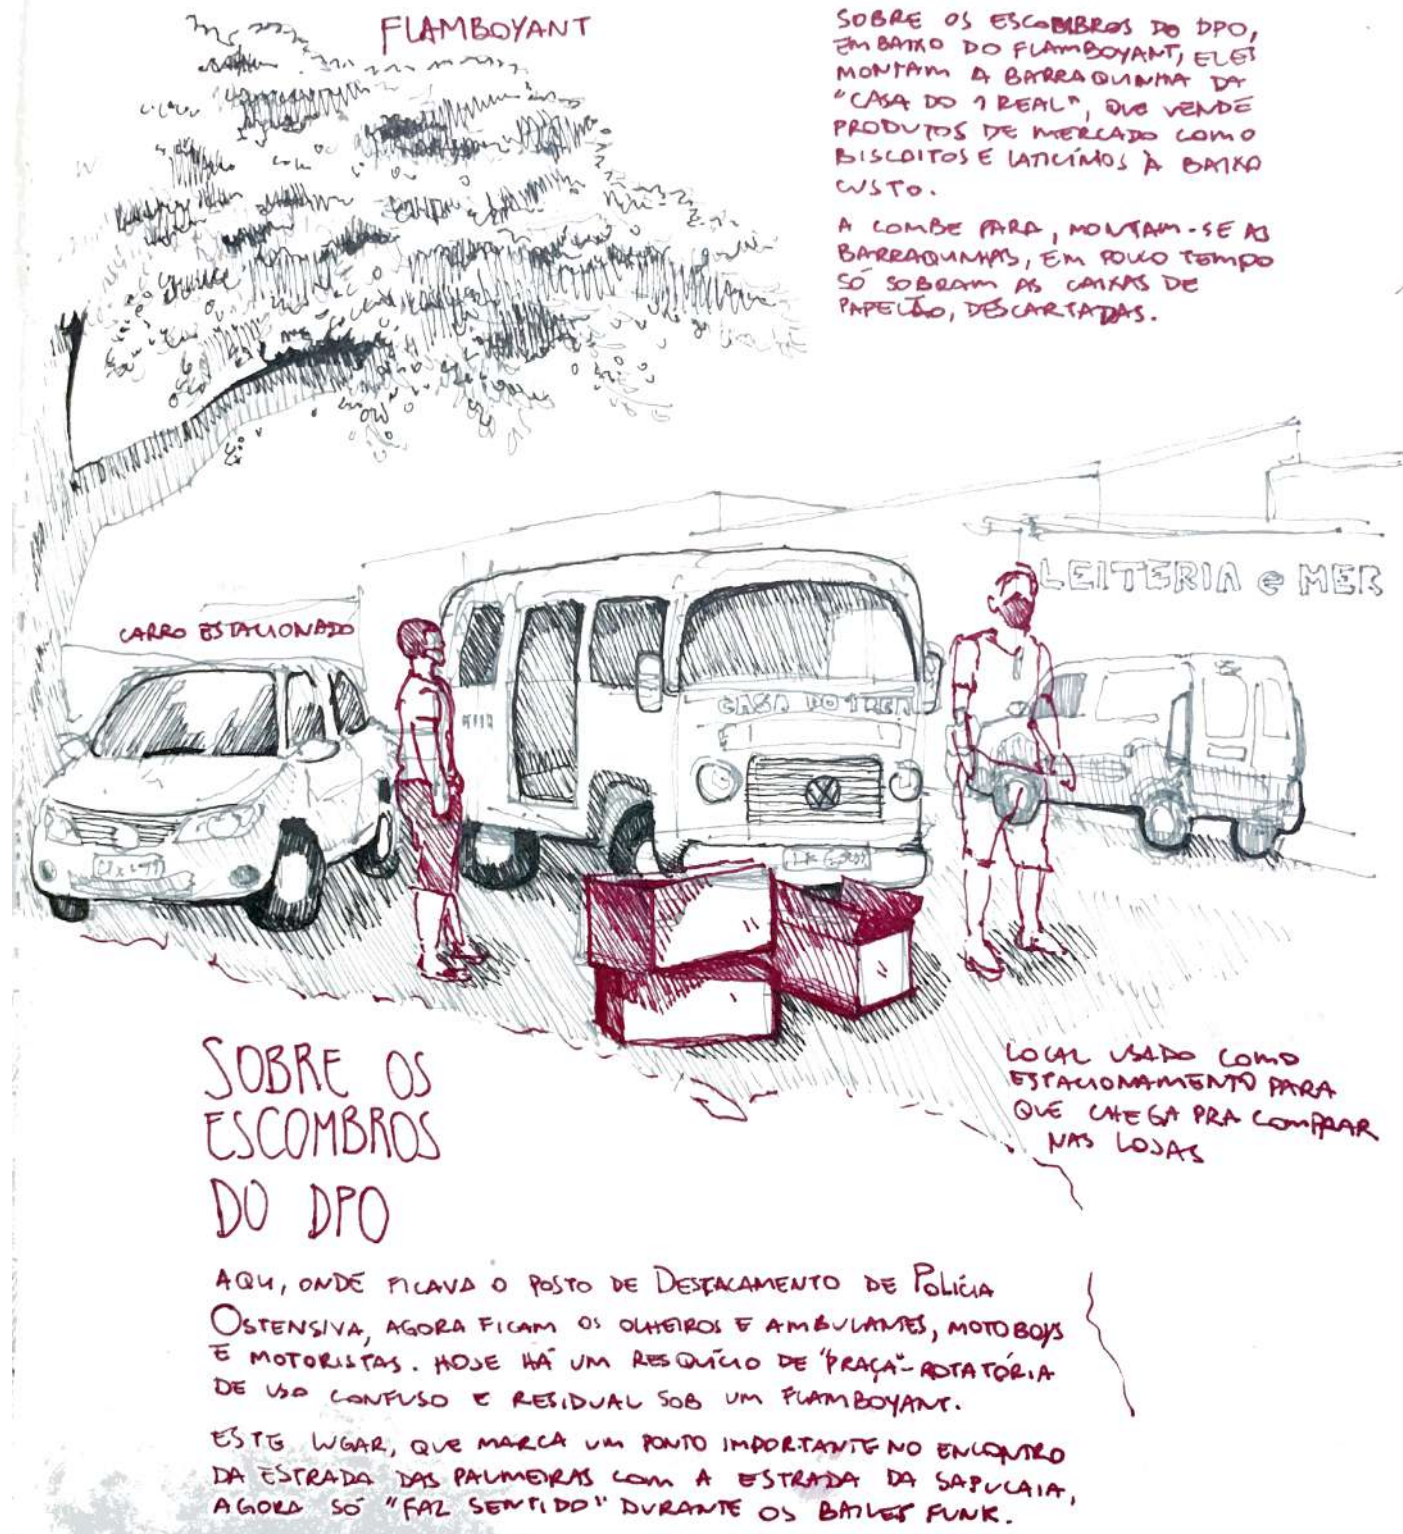 FLAMBOYANT
SOBRE OS ESCOMBROS DO DPO,
EMBAIXO DO FLAMBOYANT, ELES
MONTAM A BARRAQUINHA DA
"CASA DO 1 REAL", QUE VENDE
PRODUTOS DE MERCADO COMO
BISCOITOS E LATICÍNIOS À BAIXO
CUSTO.
A COMBE PARA, MONTAM-SE AS
BARRAQUINHAS, EM POUCO TEMPO
SÓ SOBRAM AS CAIXAS DE
PAPELÃO, DESCARTADAS.
LEITERIA e MER
CARRO ESTACIONADO
CASA DO 1 REA
LOCAL USADO COMO
ESTACIONAMENTO PARA
QUE CHEGA PRA COMPRAR
NAS LOJAS
SOBRE OS
ESCOMBROS
DO DPO
AQUI, ONDE FICAVA O POSTO DE DESTACAMENTO DE POLÍCIA
OSTENSIVA, AGORA FICAM OS OLHEIROS E AMBULANTES, MOTOBOYS
E MOTORISTAS. HOJE HÁ UM RESQUÍCIO DE "PRAÇA"-ROTATÓRIA
DE USO CONFUSO E RESIDUAL SOB UM FLAMBOYANT.
ESTE LUGAR, QUE MARCA UM PONTO IMPORTANTE NO ENCONTRO
DA ESTRADA DAS PALMEIRAS COM A ESTRADA DA SAPUCAIA,
AGORA SÓ "FAZ SENTIDO" DURANTE OS BAILES FUNK.